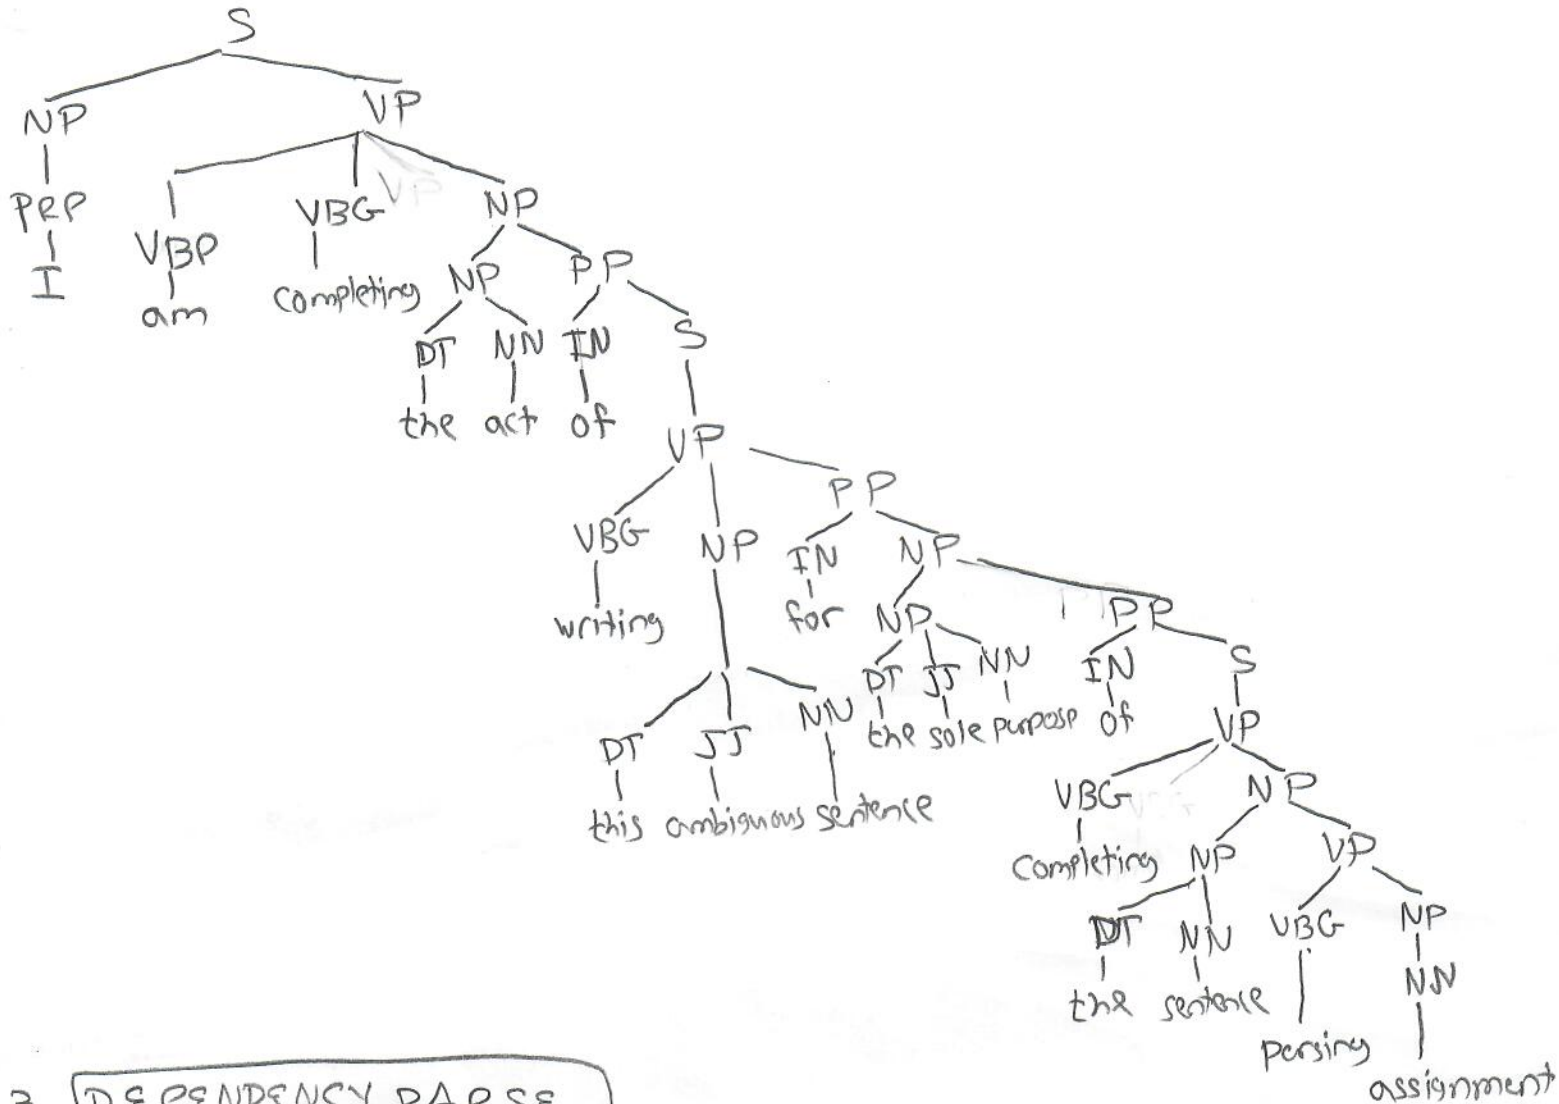 S
NP VP
PRP VBP VBG VP NP
I am completing NP PP
DT NN IN S
the act of
VP
VBG NP PP
writing IN NP
for NP PP
DT JJ NN IN S
the sole purpose of
DT JJ NN VP
this ambiguous sentence
VBG NP
completing NP VP
DT NN VBG NP
the sentence NN
parsing
assignment
DEPENDENCY PARSE